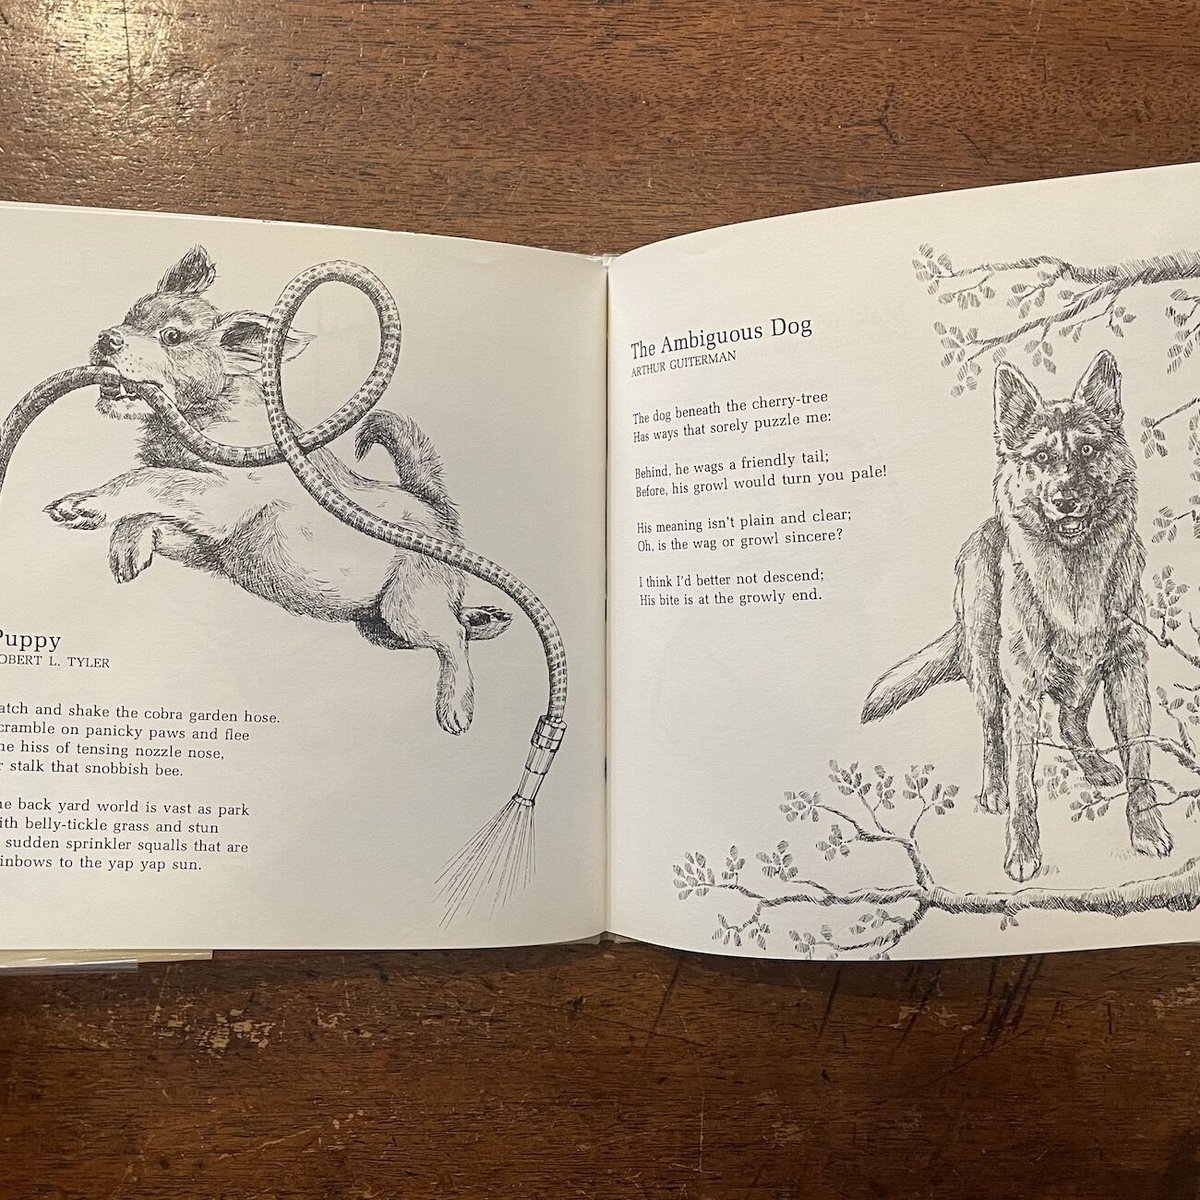 Puppy
OBERT L. TYLER
atch and shake the cobra garden hose.
cramble on panicky paws and flee
he hiss of tensing nozzle nose,
r stalk that snobbish bee.
he back yard world is vast as park
ith belly-tickle grass and stun
sudden sprinkler squalls that are
inbows to the yap yap sun.
The Ambiguous Dog
ARTHUR GUITERMAN
The dog beneath the cherry-tree
Has ways that sorely puzzle me:
Behind, he wags a friendly tail;
Before, his growl would turn you pale!
His meaning isn't plain and clear;
Oh, is the wag or growl sincere?
I think I'd better not descend;
His bite is at the growly end.